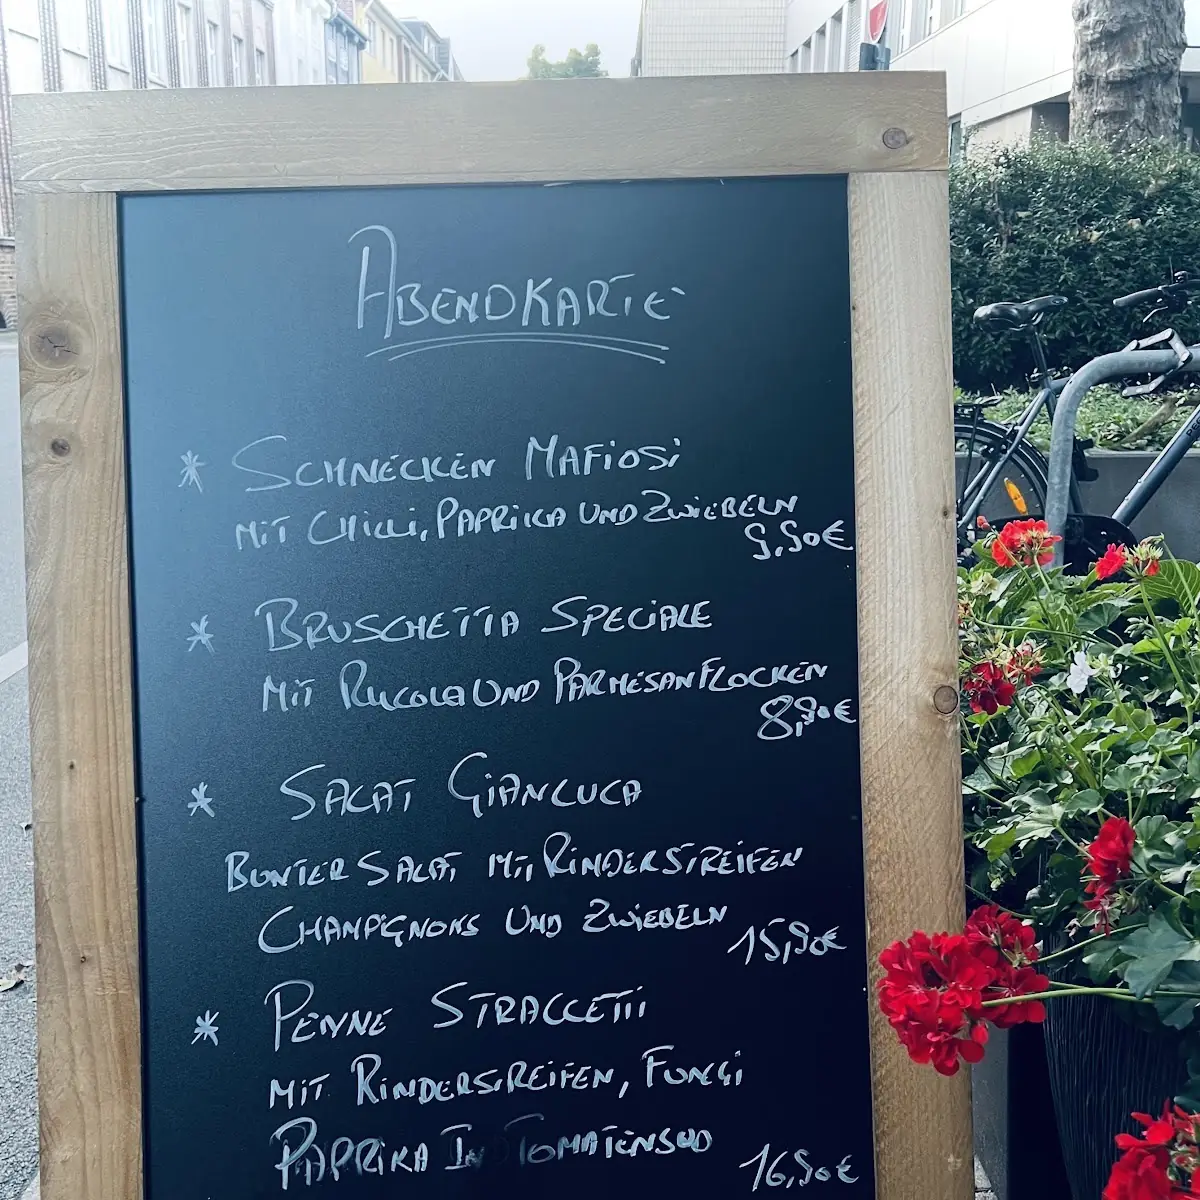 ABENDKARTE
* SCHNECKEN MAFIOSI
MIT CHILLI, PAPRIKA UND ZWIEBELN
9,90€
* BRUSCHETTA SPECIALE
MIT RUCOLA UND PARMESANFLOCKEN
8,90€
* SALAT GIANLUCA
BUNTER SALAT MIT RINDERSTREIFEN
CHAMPIGNONS UND ZWIEBELN
15,90€
* PENNE STRACCETTI
MIT RINDERSTREIFEN, FUNGI
PAPRIKA IN TOMATENSUD
16,90€